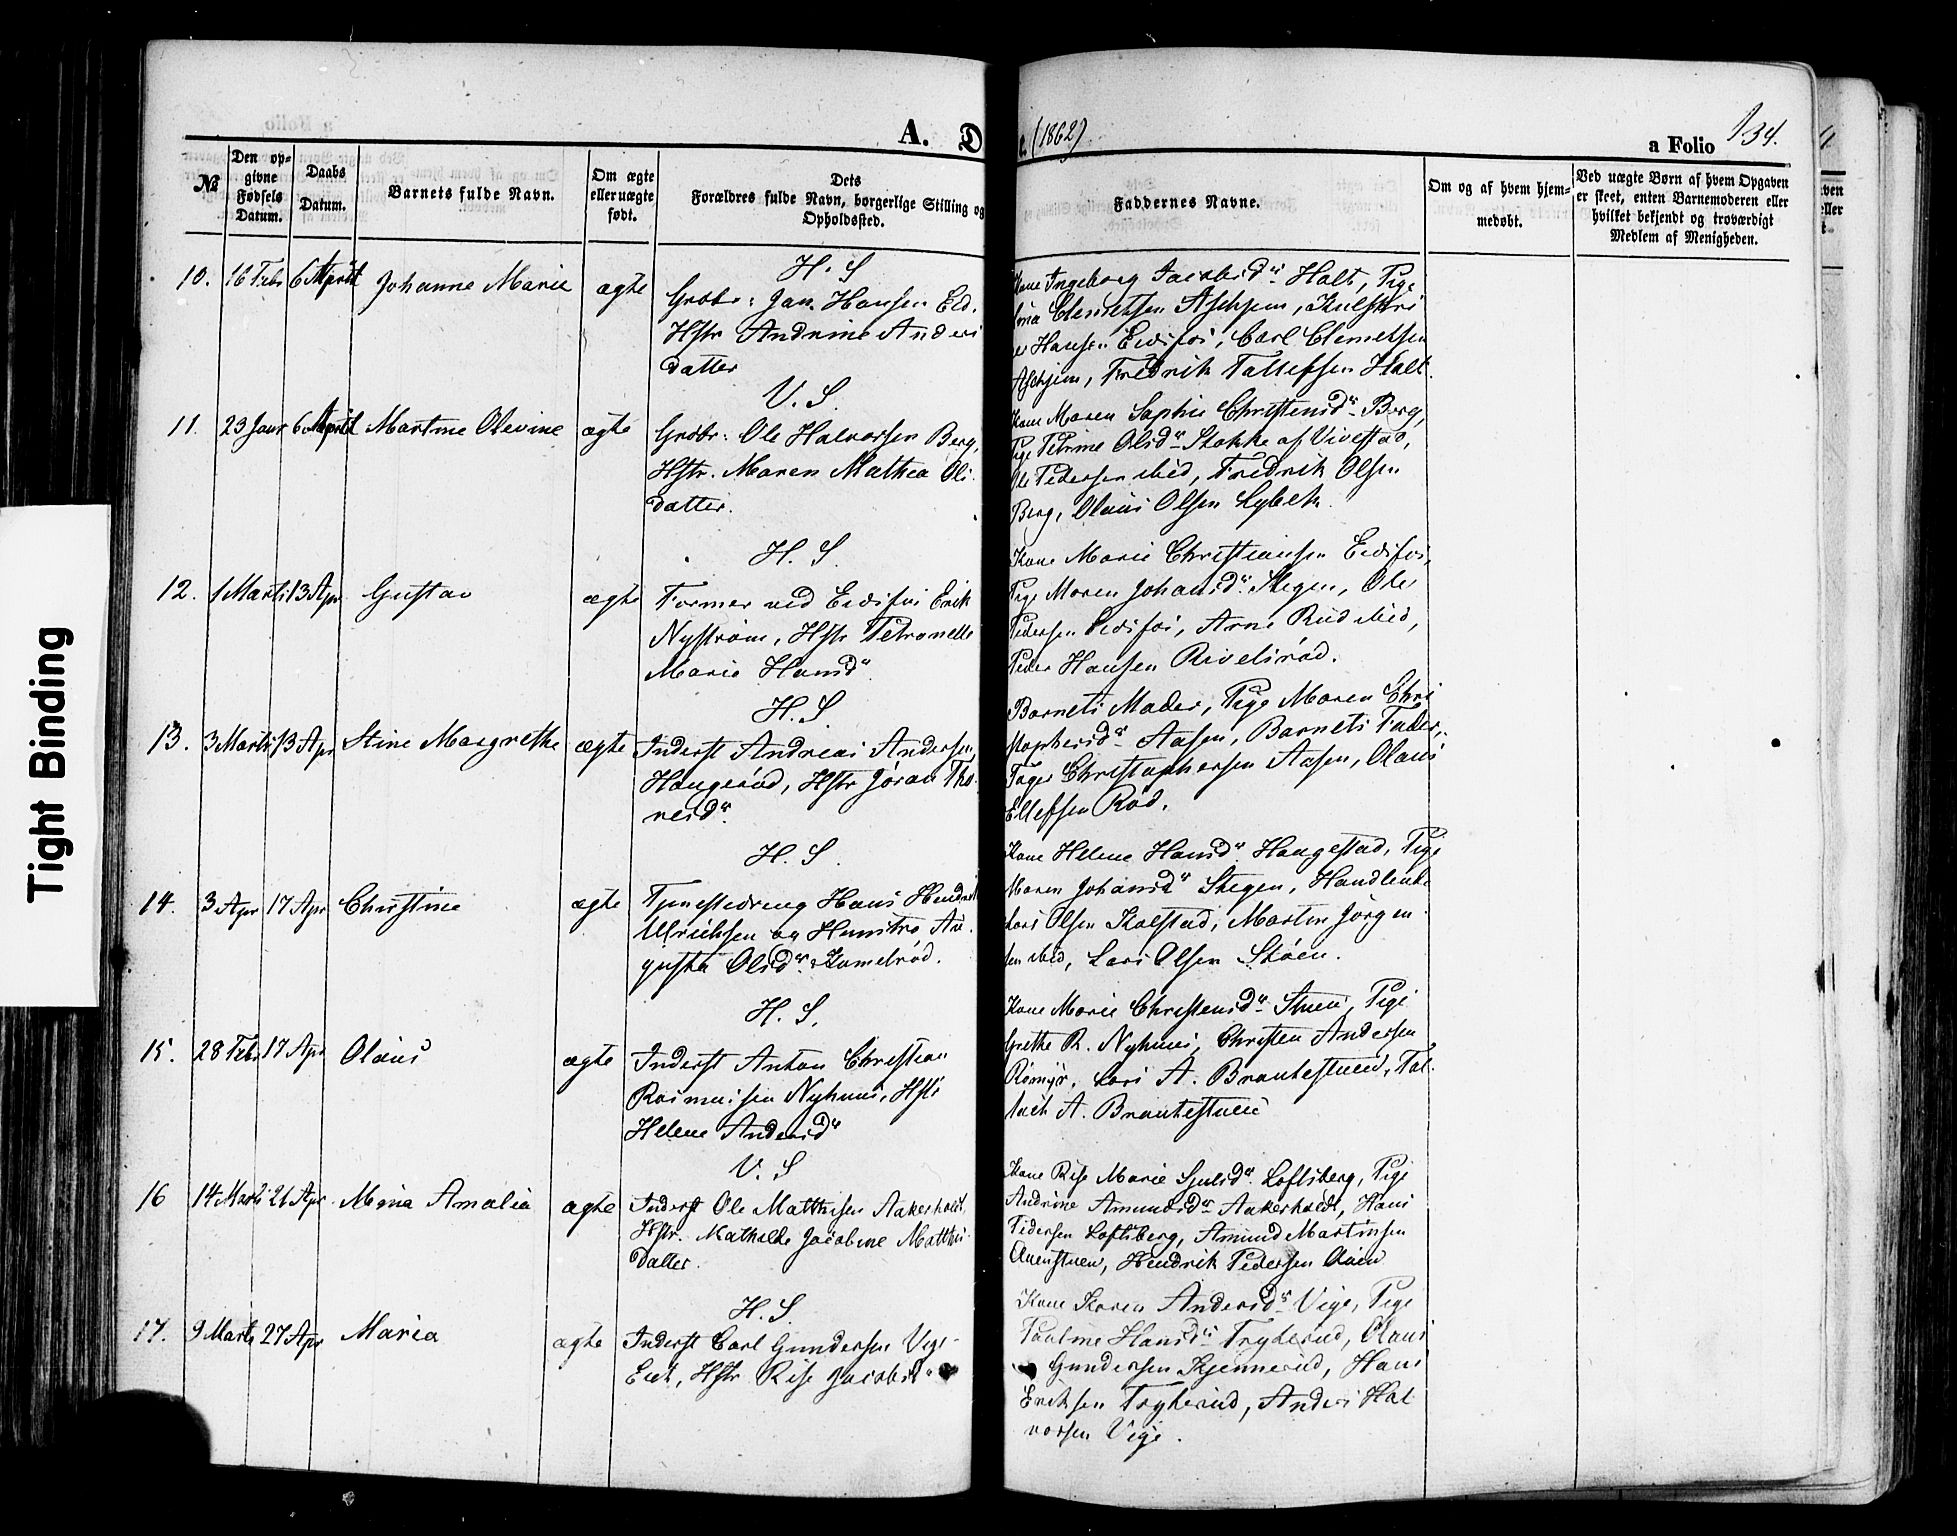 Tight Binding
A. D
(1862)
a Folio 134.
№
Den opgivne Fødsels Datum.
Daabs Datum.
Barnets fulde Navn.
Om ægte eller uægte født.
Dets Forældres fulde Navn, borgerlige Stilling og Opholdssted.
Faddernes Navne.
Om og af hvem hjemmedøbt.
Ved uægte Børn af hvem Opgaven er skeet, enten Barnemoderen eller hvilket bekjendt og troværdigt Medlem af Menigheden.
H. S
10. 16 Febr 6 April Johanne Marie ægte
Grdbr: Jan Hansen Eid.
Hstr Andrine Anders
datter
Kone Ingeborg Jacobsd. Halt, Pige
Clemetsen Aschjem,
Hansen Eidsfos, Carl Clemetsen
Aschjem, Fredrik Tollefsen Halt.
V. S.
11. 23 Janr 6 April Martine Olevine ægte
Grdbr: Ole Halvorsen Berg,
Hstr. Maren Mathea Ols
datter.
Kone Maren Sophie Christensd. Berg,
Pige Petrine Olsd. Stokke af Vivestad,
Ole Pedersen ibid, Fredrik Olsen
Berg, Olaus Olsen Lybek.
H. S.
12. 1 Marts 13 Apr Gustav ægte
Former ved Eidsfos Erik
Nystrøm, Hstr Petronelle
Marie Hansd.
Kone Marie Christiansen Eidsfos,
Pige Maren Johansd. Stegen, Ole
Pedersen Eidsfos, Arne Rud ibid,
Peder Hansen Rivelsrød.
H. S.
13. 3 Marts 13 Apr Stine Margrethe ægte
Inderst Andreas Andersen
Haugerud, Hstr Joran Tho
resd.
Barnets Moder, Pige Maren Chri
stophersd. Aasen, Barnets Fader,
Christophersen Aasen, Olaus
Ellefsen Rød.
H. S.
14. 3 Apr 17 Apr Christine ægte
Tjenestedreng Hans Hendrik
Ulriksen og Hustro Au
gusta Olsd. Kamelrød.
Kone Helene Hansd. Haugestad, Pige
Maren Johansd. Stegen, Handlende
Lars Olsen Kalstad, Martin Jörgen
sen ibid, Lars Olsen Støen.
H. S.
15. 28 Febr 17 Apr Olaus ægte
Inderst Anton Christian
Rasmussen Nyhuus, Hstr
Helene Andersd.
Kone Marie Christensd. Stuen, Pige
Grethe R. Nyhuus, Christen Andersen
Rømyr, Lars A. Brautestuen,
A. Brautestuen
V. S
16 14 Marts 21 Apr Mina Amalia ægte
Inderst Ole Matthisen Aakerholdt,
Hstr. Mathilde Jacobine Matthis
datter.
Kone Rise Marie Sjulsd. Loftsberg, Pige
Andrine Amundsd. Aakerholdt, Hans
Pedersen Loftsberg, Amund Martinsen
Hendrik Pedersen
H. S.
17. 9 Marts 27 Apr Maria ægte
Inderst Carl Gundersen Vige
Eiet, Hstr Rise Jacobsd.
Kone Karen Andersd. Vige, Pige
Pauline Hansd. Trykerud, Olaus
Gundersen Kjennerud, Hans
Eriksen Trykerud, Anders Hal
vorsen Vige.